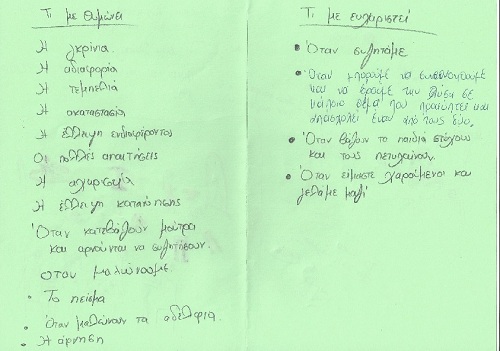 Τι με θυμώνει
Η γκρίνια
Η αδιαφορία
Η τεμπελιά
Η ακαταστασία
Η έλλειψη ενδιαφέροντος
Οι πολλές απαιτήσεις
Η αχαριστία
Η έλλειψη κατανόησης
Όταν κατεβάζουν μούτρα
και αρνούνται να συζητήσουν.
όταν μαλώνουμε
• Το πείσμα
• Όταν μαλώνουν τα αδέλφια.
• Η άρνηση
Τι με ευχαριστεί
• Όταν συζητάμε
• Όταν μπορούμε να συνεννοηθούμε
και να βρούμε την λύση σε
κάποιο θέμα που προκύπτει και
απασχολεί έναν από τους δύο.
• Όταν βάζουν τα παιδιά στόχους
και τους πετυχαίνουν.
• Όταν είμαστε χαρούμενοι και
γελάμε μαζί